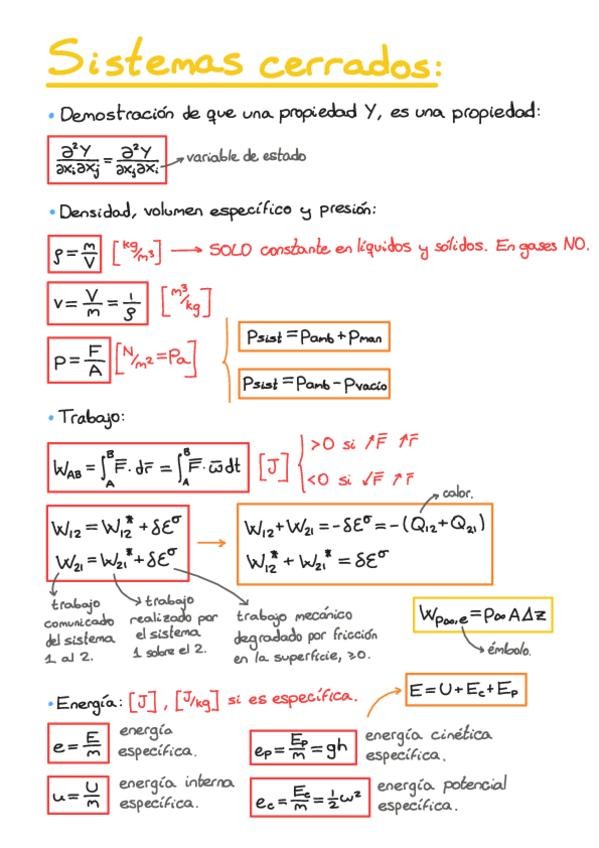 Sistemas cerrados:
• Demostración de que una propiedad Y, es una propiedad:
∂²Y/∂xᵢ∂xⱼ = ∂²Y/∂xⱼ∂xᵢ → variable de estado
• Densidad, volumen específico y presión:
ρ = m/V [kg/m³] → SOLO constante en líquidos y sólidos. En gases NO.
v = V/m = 1/ρ [m³/kg]
P = F/A [N/m² = Pa]
Psist = Pamb + Pman
Psist = Pamb - Pvacío
• Trabajo:
W_AB = ∫_A^B F̅ · dr̅ = ∫_A^B F̅ · ω̅ dt [J]
>0 si ↑F̅ ↑r̅
<0 si ↓F̅ ↑r̅
W₁₂ = W₁₂* + δƐᵟ
W₂₁ = W₂₁* + δƐᵟ
→
W₁₂ + W₂₁ = -δƐᵟ = -(Q₁₂ + Q₂₁)
calor.
W₁₂* + W₂₁* = δƐᵟ
trabajo comunicado del sistema 1 al 2.
trabajo realizado por el sistema 1 sobre el 2.
trabajo mecánico degradado por fricción en la superficie, ≥0.
W_P∞,e = P∞ A Δz
émbolo.
• Energía: [J], [J/kg] si es específica.
E = U + Ec + Ep
e = E/m energía específica.
ep = Ep/m = gh energía cinética específica.
u = U/m energía interna específica.
ec = Ec/m = ½ω² energía potencial específica.